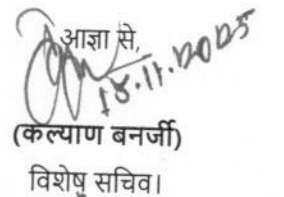 आज्ञा से,
18.11.2025
(कल्याण बनर्जी)
विशेष सचिव।